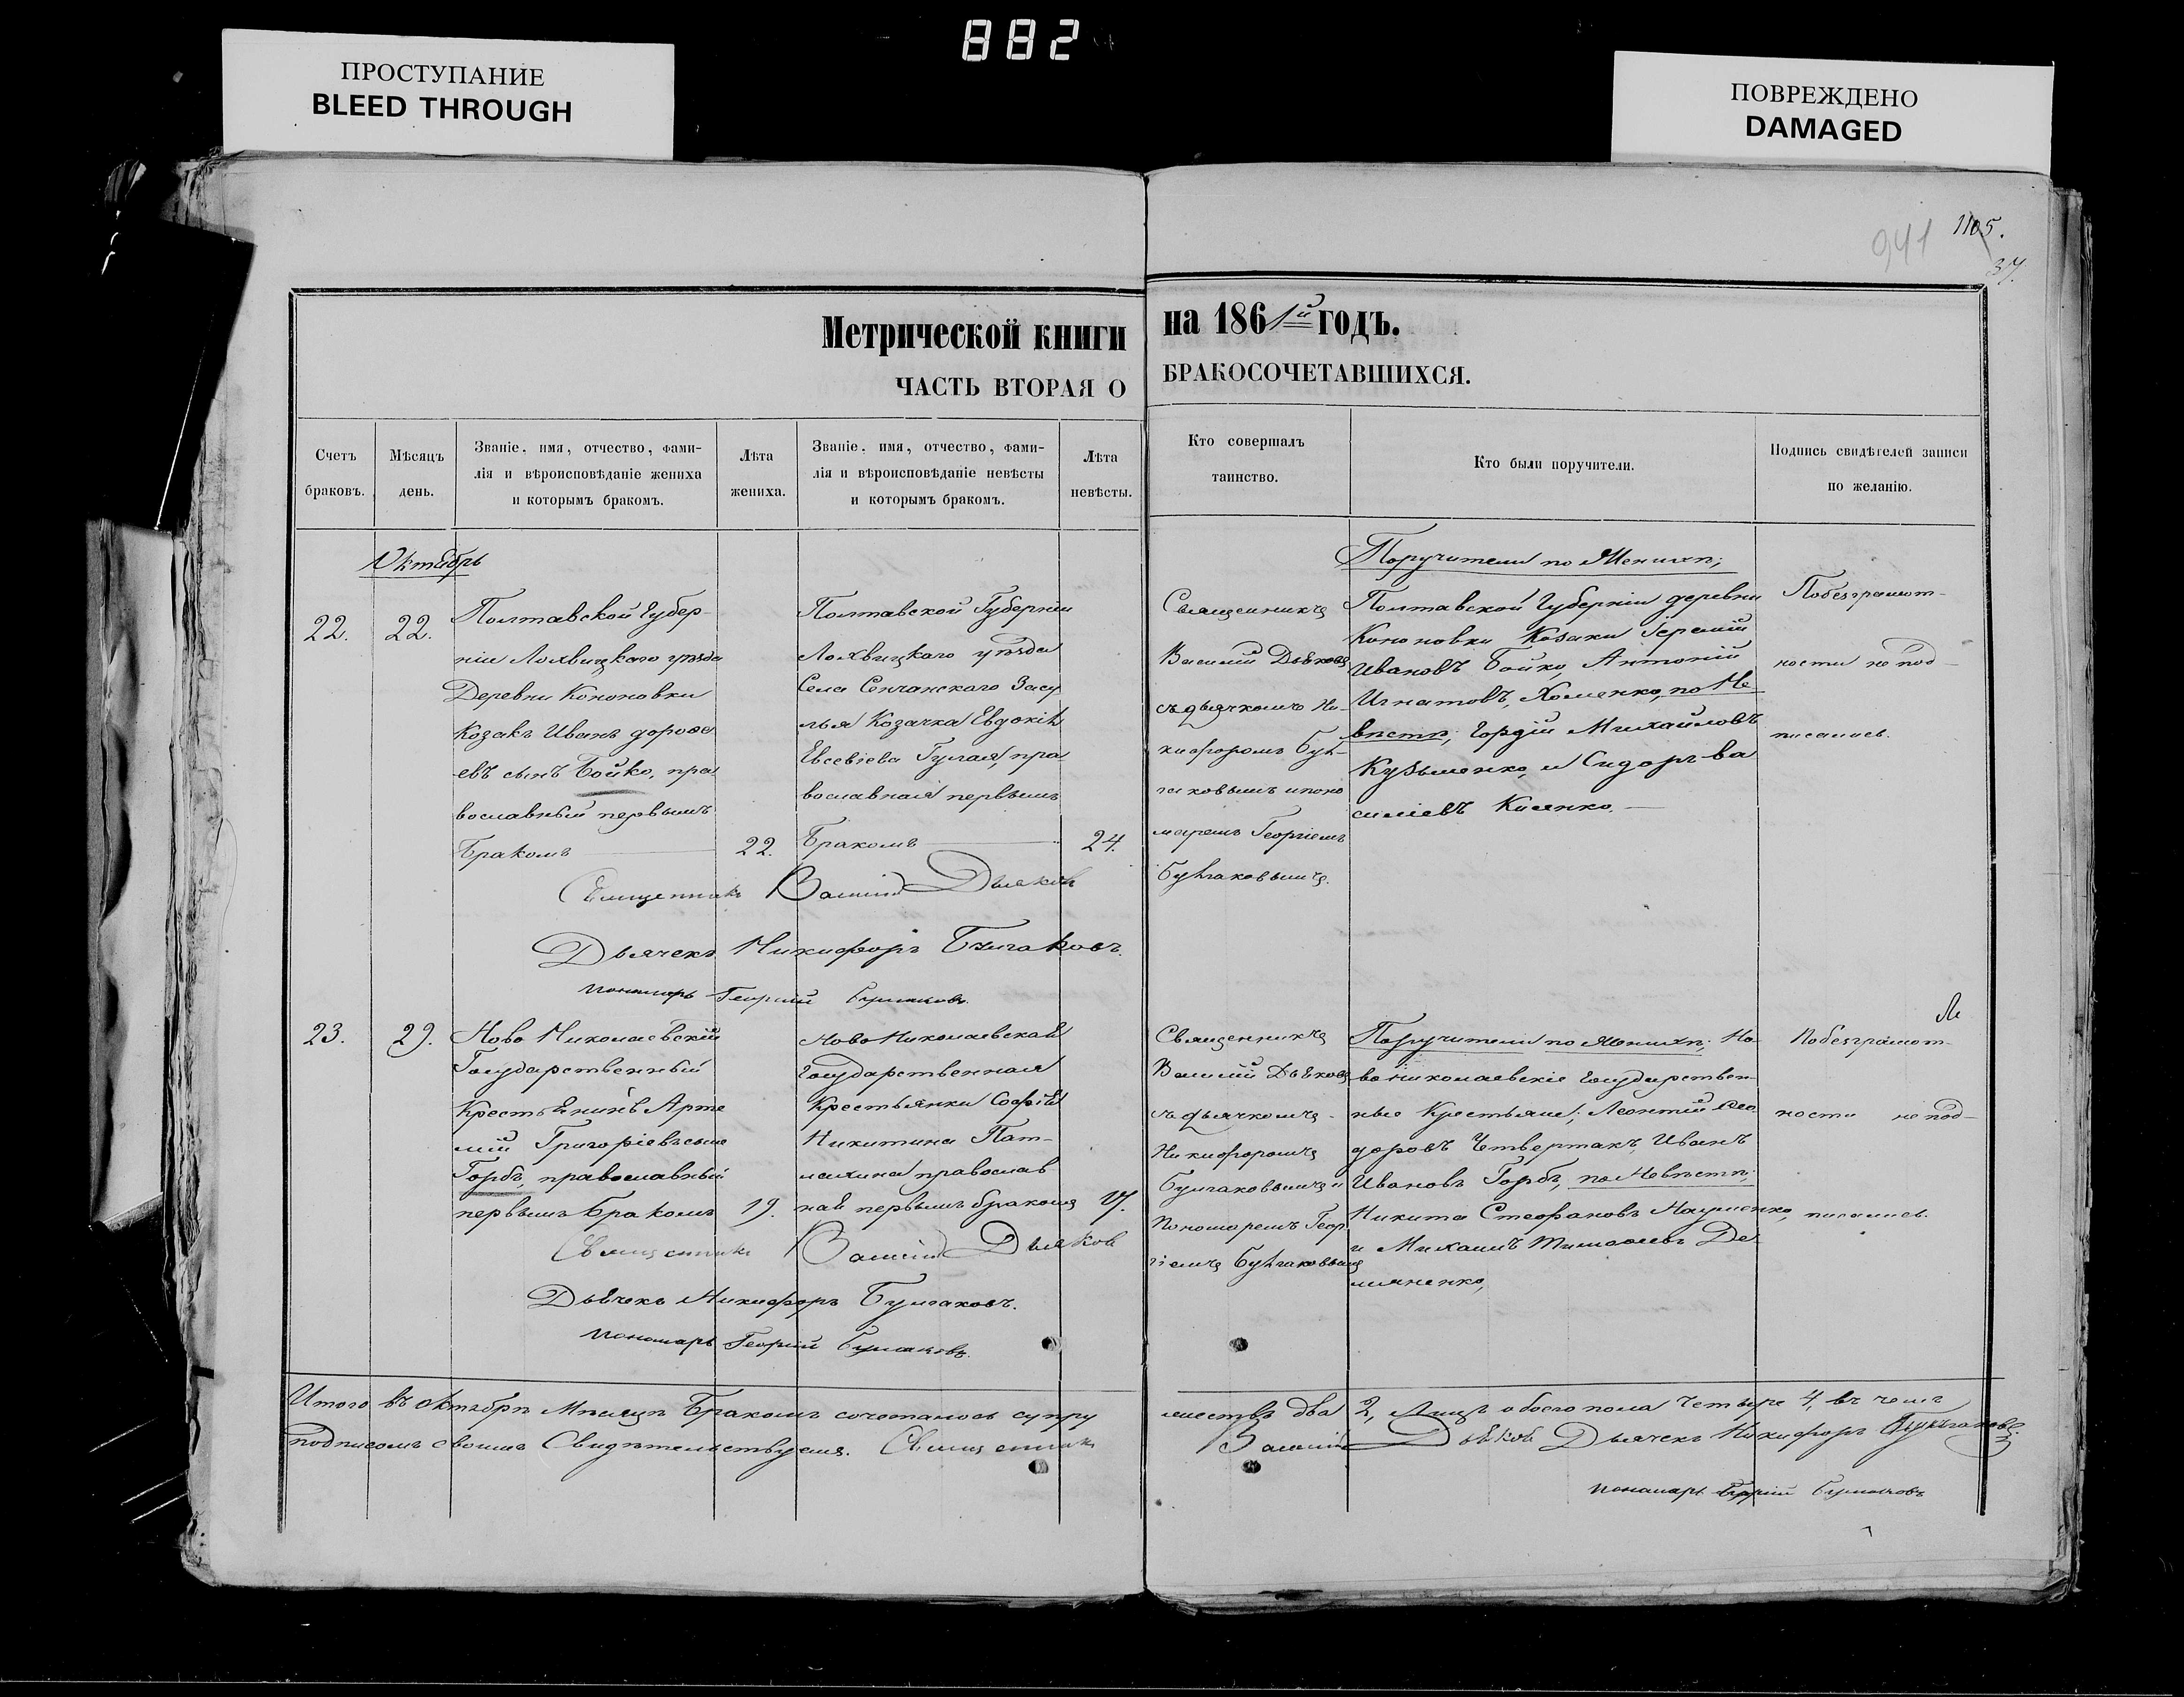 882
ПРОСТУПАНИЕ
BLEED THROUGH
ПОВРЕЖДЕНО
DAMAGED
941 1105.
37.
Метрической книги на 1861й годъ.
ЧАСТЬ ВТОРАЯ О БРАКОСОЧЕТАВШИХСЯ.
Счетъ
браковъ.
Мѣсяцъ
день.
Званіе, имя, отчество, фами-
лія и вѣроисповѣданіе жениха
и которымъ бракомъ.
Лѣта
жениха.
Званіе, имя, отчество, фами-
лія и вѣроисповѣданіе невѣсты
и которымъ бракомъ.
Лѣта
невѣсты.
Кто совершалъ
таинство.
Кто были поручители.
Подпись свидѣтелей записи
по желанію.
Октябрь
22.
22.
Полтавской Губер-
ніи Лохвицкаго уѣзда
Деревни Кононовки
Козакъ Иванъ дорофе
евъ сынъ Бойко, пра
вославный первымъ
Бракомъ
22.
Полтавской Губерніи
Лохвицкаго уѣзда
Села Сенчанскаго Засу
лья Козачка Евдокія
Евсевіева Гулая, пра
вославная первымъ
Бракомъ
24.
Священникъ
Василій Дьяковъ
съ дьячкомъ Ни-
кифоромъ Бул-
гаковымъ и поно
маремъ Георгіемъ
Булгаковымъ.
Поручители по Женихѣ;
Полтавской Губерніи деревни
Кононовки Козаки Іеремій
Ивановъ Бойко, Антоній
Игнатовъ, Хоменко, по Не
вѣстѣ; Гордій Михайловъ
Кузьменко, и Сидоръ Ва
силіевъ Кисенко.
По безграмот-
ности не под-
писались.
Священникъ Василій Дьяковъ
Дьячекъ Никифоръ Булгаковъ.
пономарь Георгій Булгаковъ.
23.
29.
Ново Николаевскій
Государственный
Крестьянинъ Арте
мій Григоріевъ сынъ
Горбъ, православный
первымъ Бракомъ
19.
Ново Николаевская
Государственная
Крестьянка Софія
Никитина
православ
ная первымъ бракомъ
17.
Священникъ
Василій Дьяковъ
съ дьячкомъ
Никифоромъ
Булгаковымъ и
Пономаремъ Геор
гіемъ Булгаковымъ
Поручители по Женихѣ; Но-
вониколаевскіе Государствен-
ные Крестьяне; Леонтій Фео
доровъ Четвертакъ, Иванъ
Ивановъ Горбъ, по Невѣстѣ;
Никита Стефановъ Науменко,
и Михаилъ Тимофеевъ Де-
мяненко,
По безграмот-
ности не под-
писались.
Священникъ Василій Дьяковъ
Дьячекъ Никифоръ Булгаковъ.
пономарь Георгій Булгаковъ.
Итого въ октябрѣ Мѣсяцѣ Бракомъ сочеталось супру жествъ два 2, Лицъ обоего пола четыре 4, въ чемъ
подписомъ своимъ Свидѣтельствуемъ. Священникъ Василій Дьяковъ Дьячекъ Никифоръ Булгаковъ.
пономарь Георгій Булгаковъ